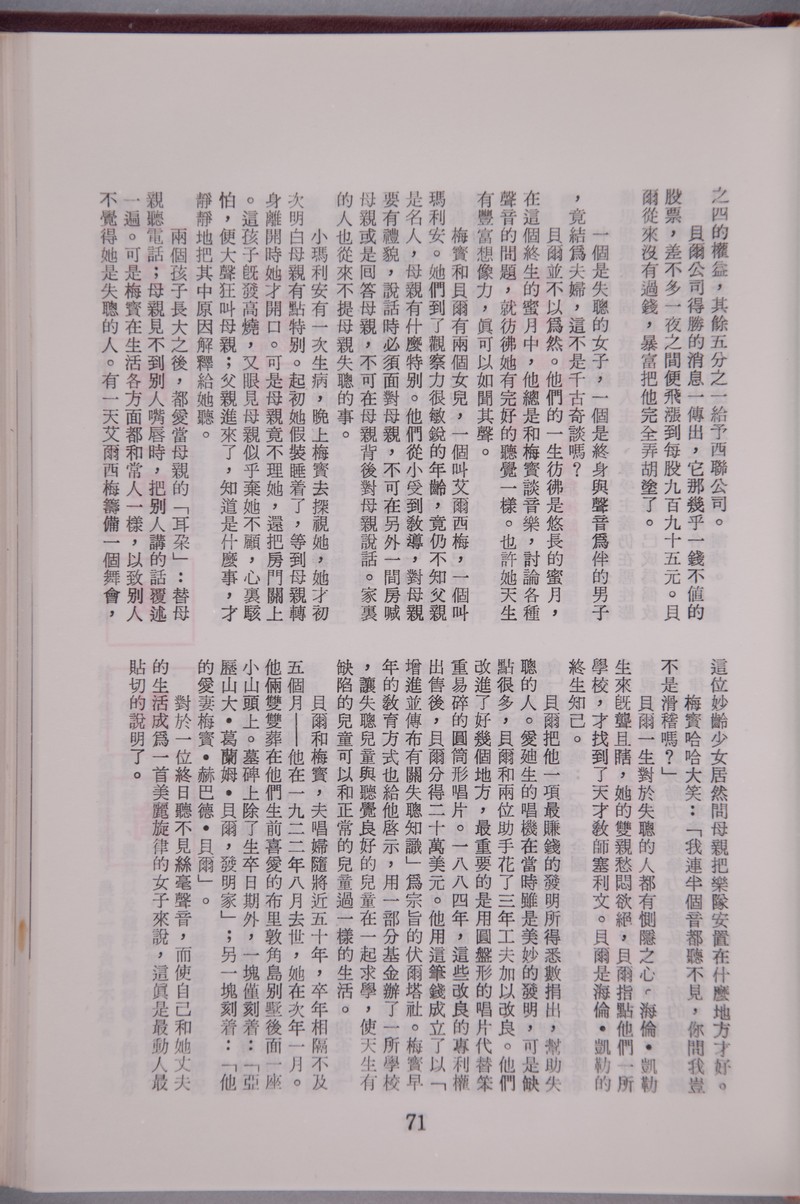 之四的權益，其餘五分之一給予西聯公司。
貝爾公司得勝的消息一傳出，它那幾乎一錢不值的
股票，差不多一夜之間便飛漲到每股九百九十五元。貝
爾從來沒有過錢，暴富把他完全弄胡塗了。
一個是失聰的女子，一個是終身與聲音爲伴的男子
，竟結爲夫婦，這不是千古奇談嗎？
貝爾並不以爲然。他們的一生彷彿是悠長的蜜月，
在這個終生的蜜月中，他總是和梅賓談音樂，討論各種
聲音的問題，就彷彿她有完好的聽覺一樣。也許她天生
有豐富想像力，眞可以如聞其聲。
梅賓和貝爾有兩個女兒，一個叫艾爾西梅，一個叫
瑪利安。她們到了觀察力很敏銳的年齡，竟仍不知父親
是名人，母親有什麼特別。他們從小受到敎導，對母親
要有禮貌，說話時必須面對母親，不可在另外一間房喊
母親或是回答母親，不可在母親背後對母親說話。家裏
的人也從來不提母親失聰的事。
小瑪利安有一次生病，晚上梅賓去探視她，她才初
次明白母親有點特別。起初她假裝睡着了，等到母親轉
身離開時她才開口。可是母親竟不理她，還把房門關上
。這孩子旣發高燒，又眼見母親似乎棄她不顧，心裏駭
怕，便大聲狂叫母親；父親進來了，知道是什麼事，才
靜靜地把其中原因解釋給她聽。
兩個孩子長大之後，都愛當母親的「耳朶」：替母
親聽電話；母親見不到別人嘴唇時，把別人講的話覆述
一遍。可是梅賓在生活各方面都和常人一樣，以致別人
不覺得她是失聰的人。有一天艾爾西梅籌備一個舞會，
這位妙齡少女居然問母親把樂隊安置在什麼地方才好。
梅賓哈哈大笑：「我連半個音都聽不見，你問我豈
不是滑稽嗎？」
貝爾一生對於失聰的人都有惻隱之心。海倫•凱勒
生來旣聾且瞎，她的雙親愁悶欲絕，貝爾指點他們一所
學校，才找到了天才敎師塞利文。貝爾是海倫•凱勒的
終生知己。
貝爾把他一項最賺錢的發明所得悉數捐出，幫助失
聰的人。愛廸生的唱機在當時雖是美妙的發明，可是缺
點很多，貝爾和兩位助手花了三年工夫加以改良。他們
改進了好幾個地方，最重要的是用圓盤形的唱片代替笨
重易碎的圓筒形唱片。一八八四年，這些改良的專利權
出售後，貝爾分得二十萬美元。他用這筆錢成立了以「
增進並傳布有關失聰知識」爲宗旨的伏爾塔社。梅賓早
年的敎育方式也給他啓示，用一部分基金辦了一所學校
，讓失聰兒童與聽覺良好的兒童在一起求學，使天生有
缺陷的兒童可以和正常的兒童過一樣的生活。
貝爾和梅賓，夫唱婦隨將近五十年，卒年相隔不及
五個月——他在一九二二年八月去世，她在次年一月。
他倆雙雙葬在他們生前喜愛的布里敦角島別墅後面一座
小山頭上。墓碑上除了生卒日期外，一塊僅刻着：「亞
歷山大•葛蘭姆•貝爾，發明家」；另一塊刻着：「他
的愛妻梅賓•赫巴德•貝爾」。
對於一位終日聽不見絲毫聲音，而使自己和她丈夫
的生活成爲一首美麗旋律的女子來說，這眞是最動人最
貼切的說明了。
71